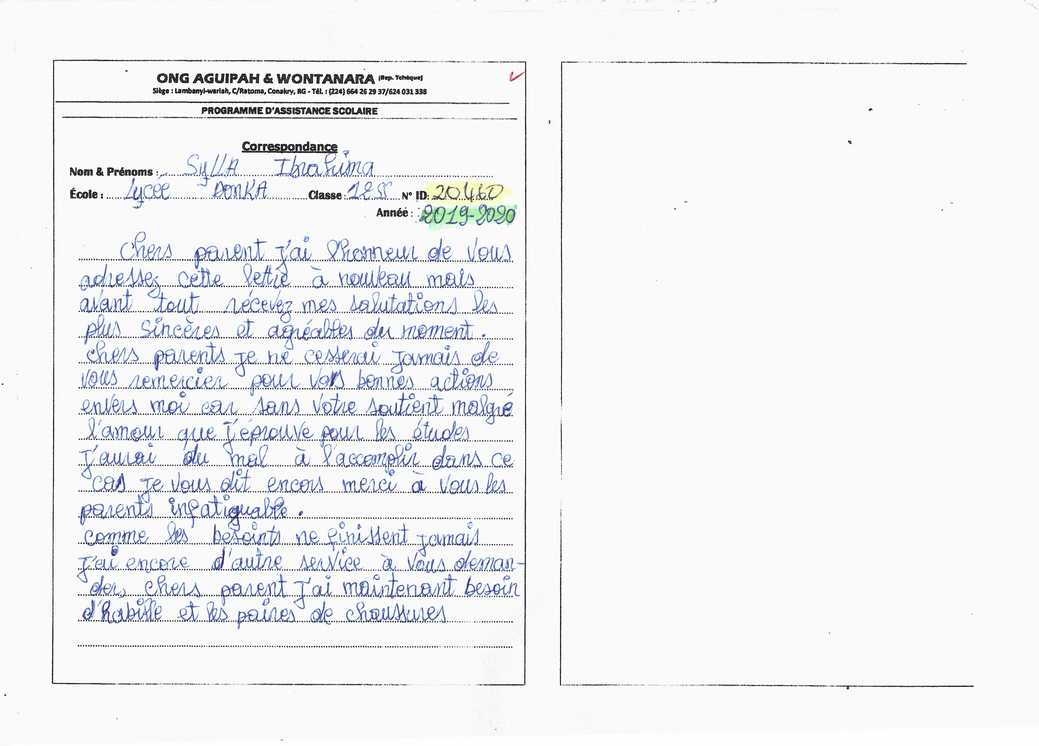 ONG AGUIPAH & WONTANARA (Rep. Tchèque)
Siège : Lambanyi-wariah, C/Ratoma, Conakry, RG - Tél. : (224) 664 26 29 37/624 031 338
PROGRAMME D'ASSISTANCE SCOLAIRE
Correspondance
Nom & Prénoms : SyllA Ibrahima
École : Lycee DonKA Classe : 12 SS N° ID: 20460
Année : 2019-2020
Chers parent j'ai l'honneur de vous
adressez cette lettre à nouveau mais
avant tout recevez mes salutations les
plus sincères et agréables du moment.
chers parents je ne cesserai jamais de
vous remercier pour vos bonnes actions
envers moi car sans votre soutient malgré
l'amour que j'éprouve pour les études
j'aurai du mal à l'accomplir dans ce
cas je vous dit encors merci à vous les
parents infatiguable.
comme les besoints ne finissent jamais
j'ai encore d'autre service à vous deman-
der, chers parent j'ai maintenant besoin
d'habille et les paires de chaussures